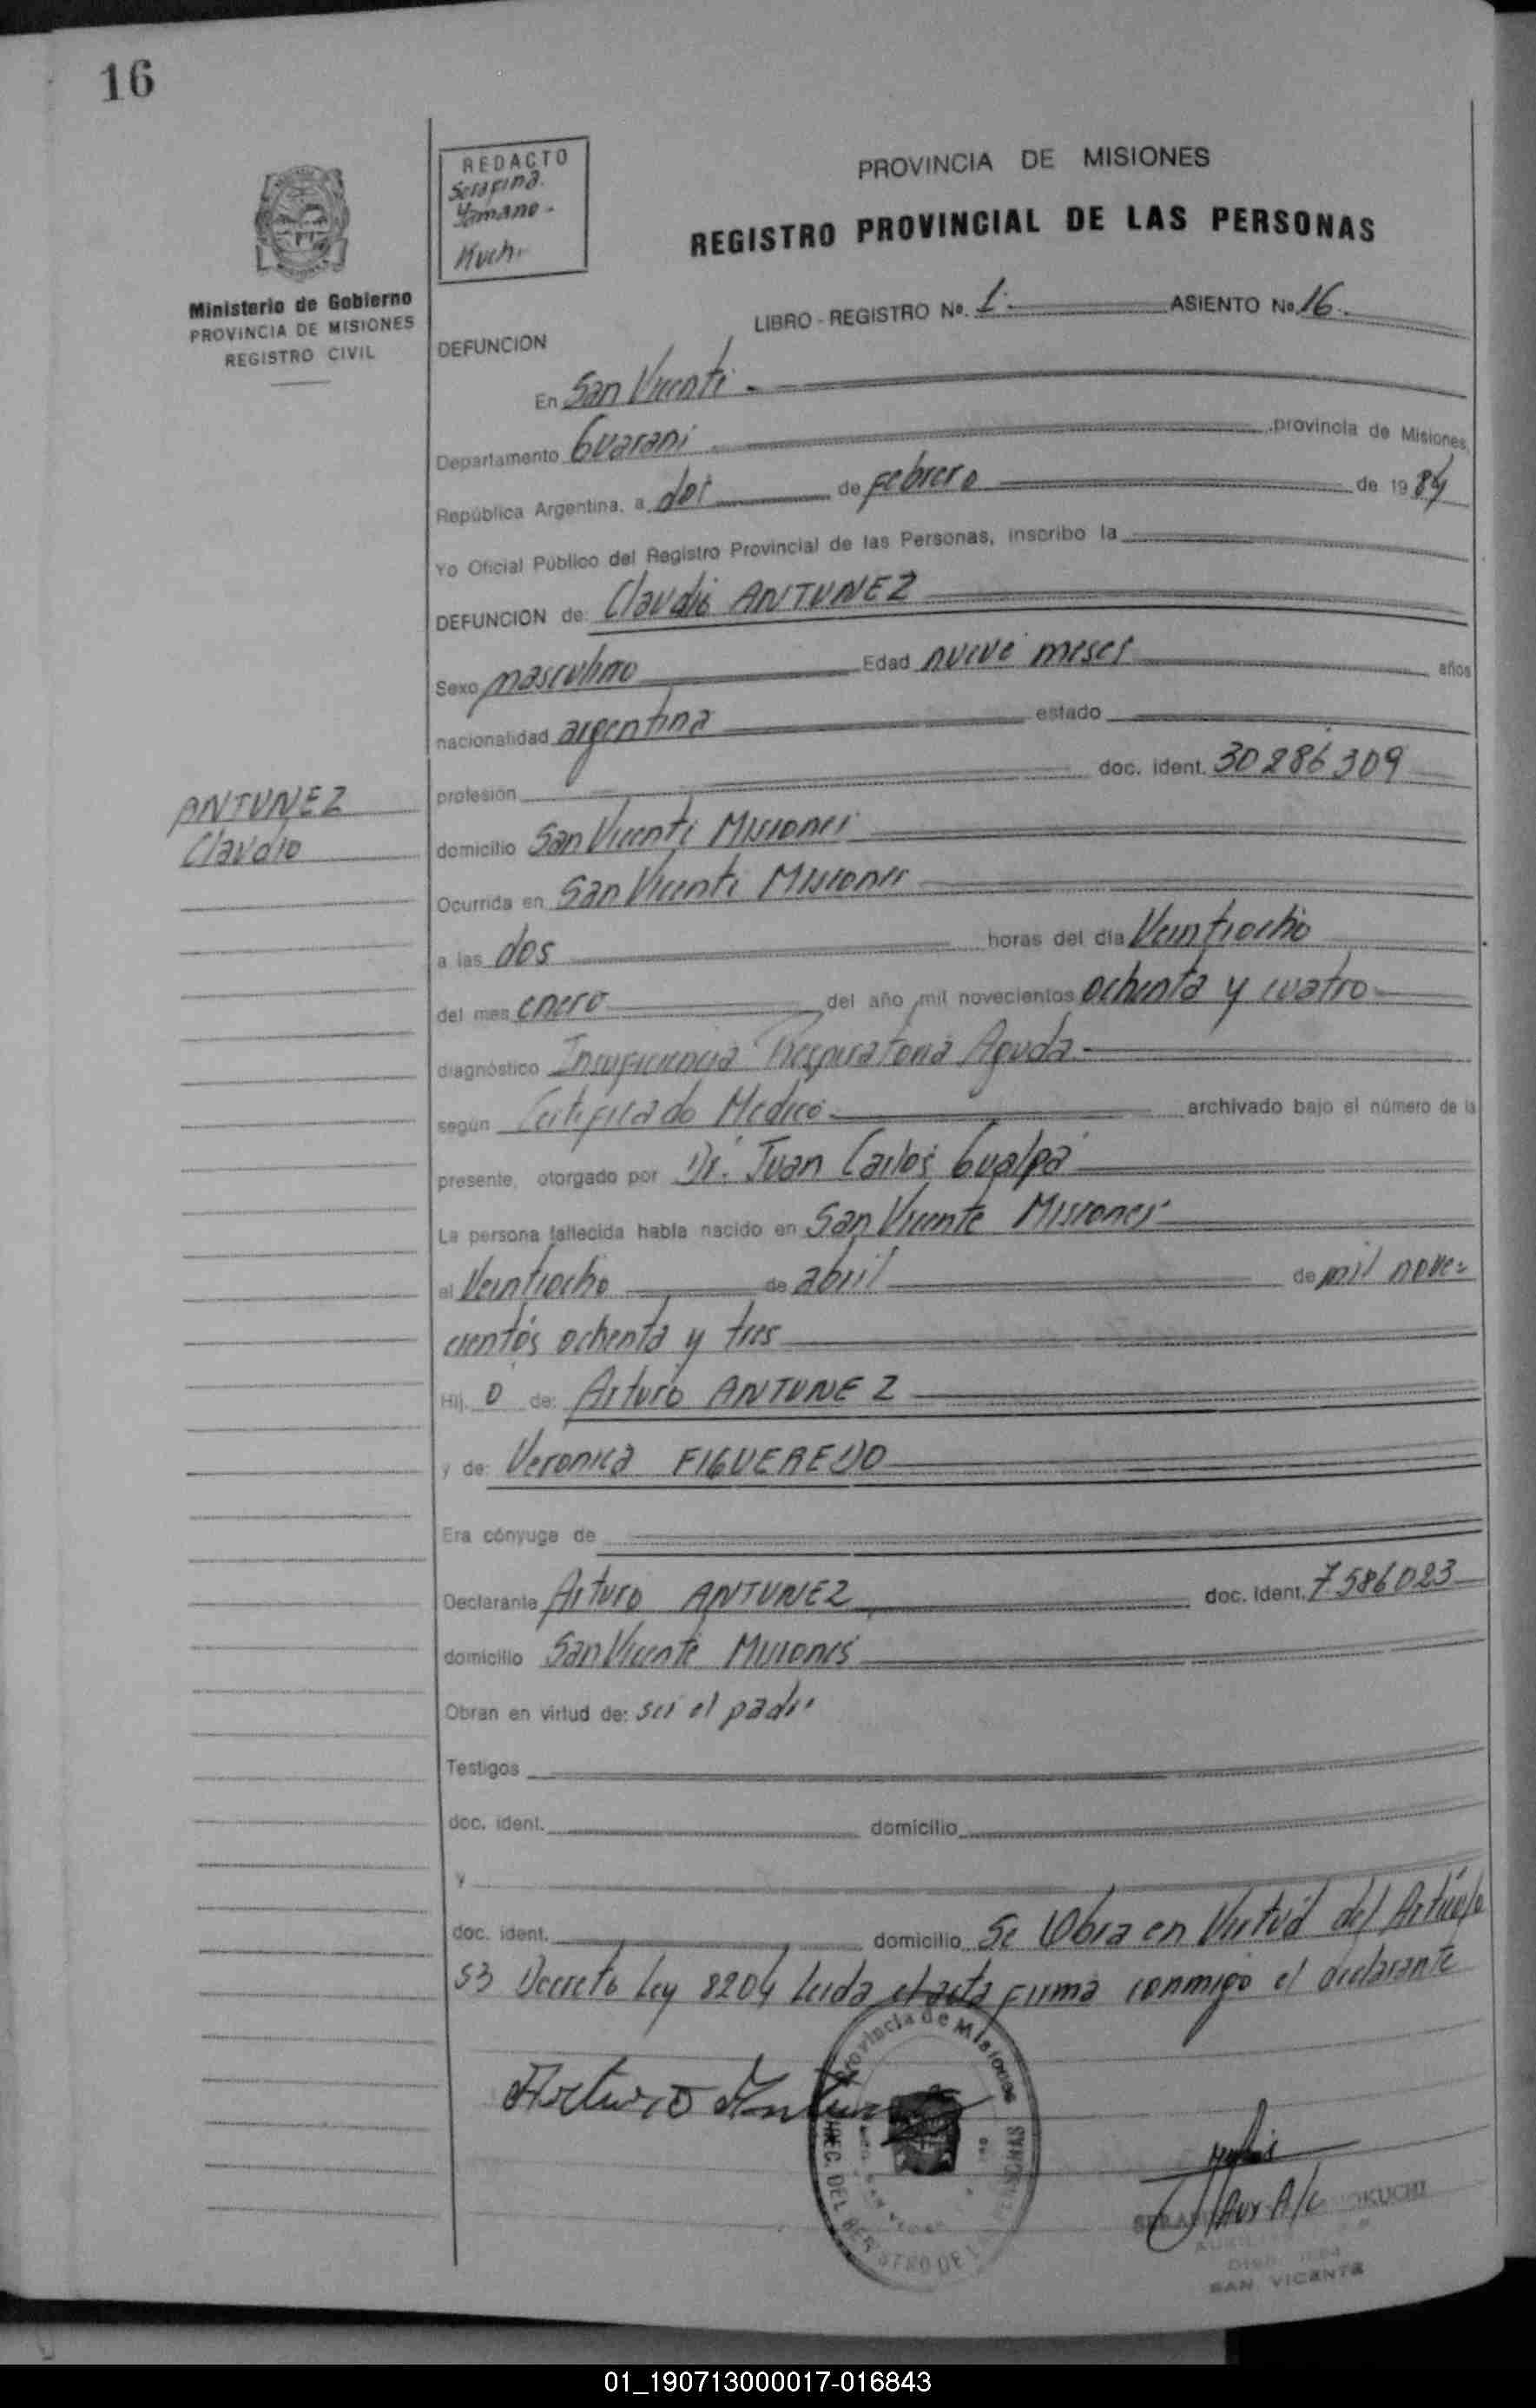 16
REDACTO
Serafina
Yamano-
Kuchi
PROVINCIA DE MISIONES
REGISTRO PROVINCIAL DE LAS PERSONAS
Ministerio de Gobierno
PROVINCIA DE MISIONES
REGISTRO CIVIL
LIBRO - REGISTRO No. 1. ASIENTO No. 16.
DEFUNCION
En San Vicente
Departamento Guarani provincia de Misiones,
República Argentina, a dos de Febrero de 1984
Yo Oficial Público del Registro Provincial de las Personas, inscribo la
DEFUNCION de: Claudio ANTUNEZ
Sexo masculino Edad nueve meses años
nacionalidad argentina estado
profesión doc. ident. 30286309
ANTUNEZ
Claudio
domicilio San Vicente Misiones
Ocurrida en San Vicente Misiones
a las dos horas del día Veintiocho
del mes enero del año mil novecientos ochenta y cuatro
diagnóstico Insuficiencia Respiratoria Aguda
según Certificado Medico archivado bajo el número de la
presente, otorgado por Dr. Juan Carlos Gualpa
La persona fallecida había nacido en San Vicente Misiones
el Veintiocho de abril de mil nove=
cientos ochenta y tres
Hij. o de: Arturo ANTUNEZ
y de: Veronica FIGUEREDO
Era cónyuge de
Declarante Arturo ANTUNEZ doc. ident. 7586023
domicilio San Vicente Misiones
Obran en virtud de: ser el padre
Testigos
doc. ident. domicilio
y
doc. ident. domicilio Se Obra en Virtud del Artículo
53 Decreto Ley 8204 leida el acta firma conmigo el declarante
Provincia de Misiones
DIREC. DEL REGISTRO DE LAS PERSONAS
Arturo Antunez
Aux A/c
SAN VICENTE
01_190713000017-016843